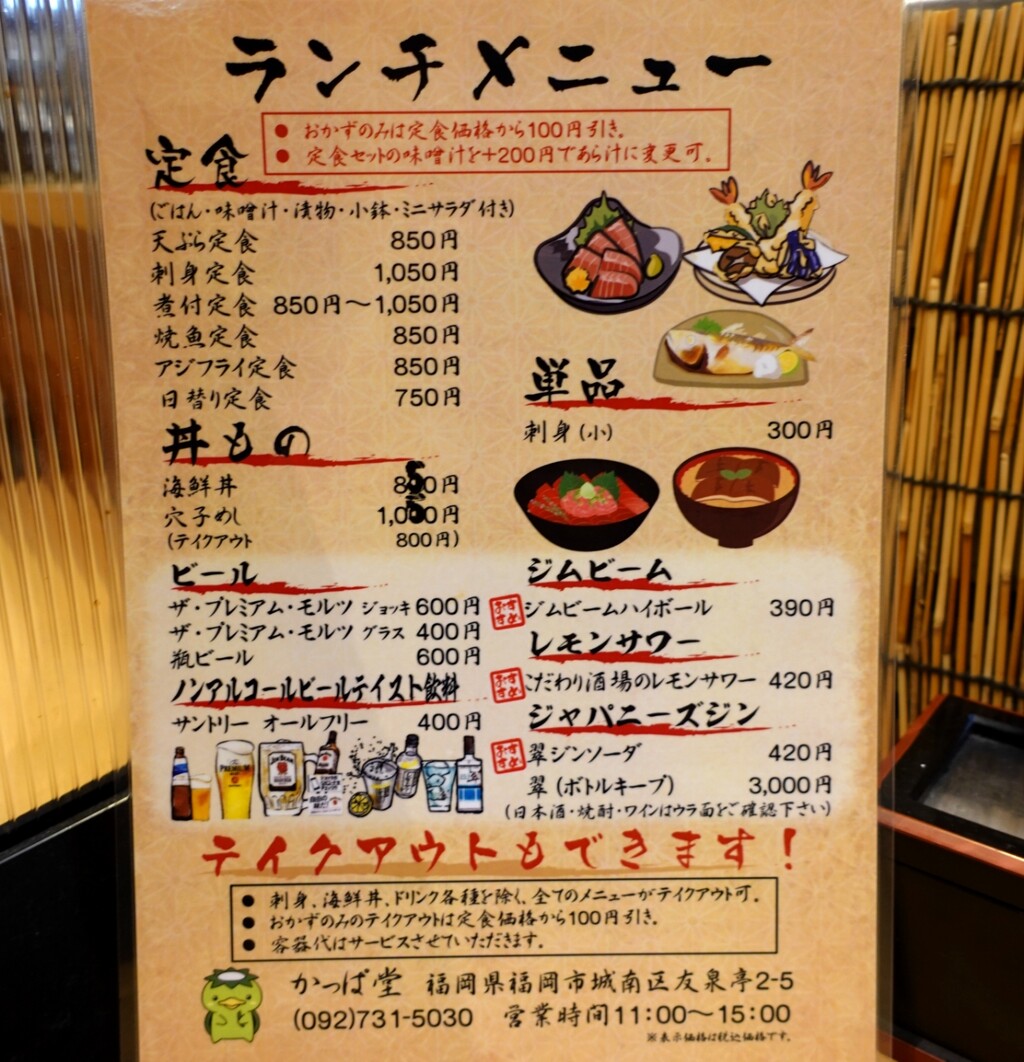 ランチメニュー
● おかずのみは定食価格から100円引き。
● 定食セットの味噌汁を+200円であら汁に変更可。
定食
(ごはん・味噌汁・漬物・小鉢・ミニサラダ付き)
天ぷら定食 850円
刺身定食 1,050円
煮付定食 850円〜1,050円
焼魚定食 850円
アジフライ定食 850円
日替り定食 750円
単品
刺身(小) 300円
丼もの
海鮮丼 850円
穴子めし 1,050円
(テイクアウト 800円)
ビール
ザ・プレミアム・モルツ ジョッキ 600円
ザ・プレミアム・モルツ グラス 400円
瓶ビール 600円
ノンアルコールビールテイスト飲料
サントリー オールフリー 400円
ジムビーム
おすすめ ジムビームハイボール 390円
レモンサワー
おすすめ こだわり酒場のレモンサワー 420円
ジャパニーズジン
おすすめ 翠ジンソーダ 420円
翠(ボトルキープ) 3,000円
(日本酒・焼酎・ワインはウラ面をご確認下さい)
テイクアウトもできます!
● 刺身、海鮮丼、ドリンク各種を除く、全てのメニューがテイクアウト可。
● おかずのみのテイクアウトは定食価格から100円引き。
● 容器代はサービスさせていただきます。
かっぱ堂 福岡県福岡市城南区友泉亭2-5
(092)731-5030 営業時間11:00〜15:00
※表示価格は税込価格です。